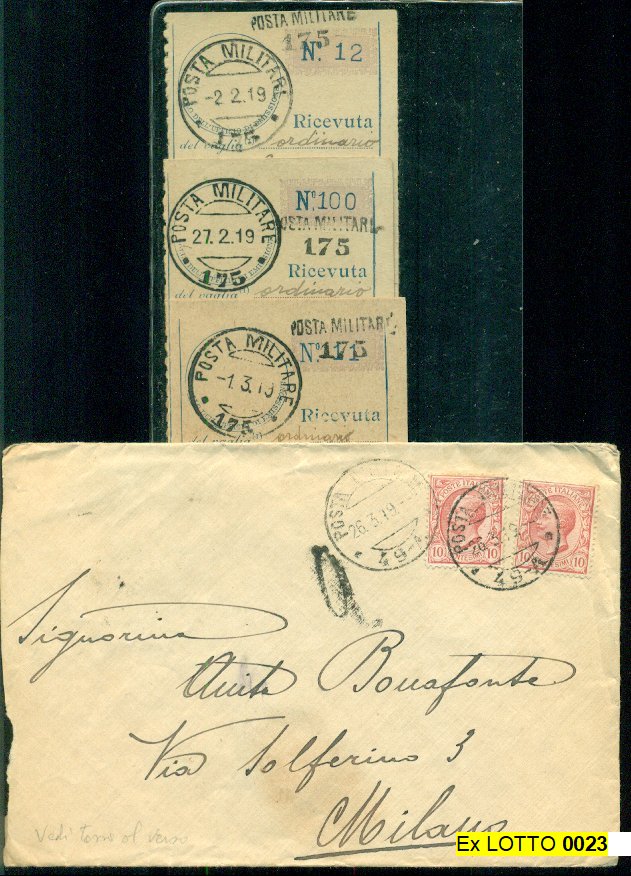 POSTA MILITARE
175
Nº 12
POSTA MILITARE
-2.2.19
175
Ricevuta
del vaglia ordinario
Nº 100
POSTA MILITARE
27.2.19
175
POSTA MILITARE
175
Ricevuta
del vaglia ordinario
POSTA MILITARE
175
Nº 11
POSTA MILITARE
-1.3.19
175
Ricevuta
ordinario
POSTA
26.3.19
POSTE ITALIANE
10 10
POSTA
26.3.19
POSTE ITALIANE
10 10
Signorina
Anita Bonafonte
Via Solferino 3
Milano
Vedi al verso
Ex LOTTO 0023